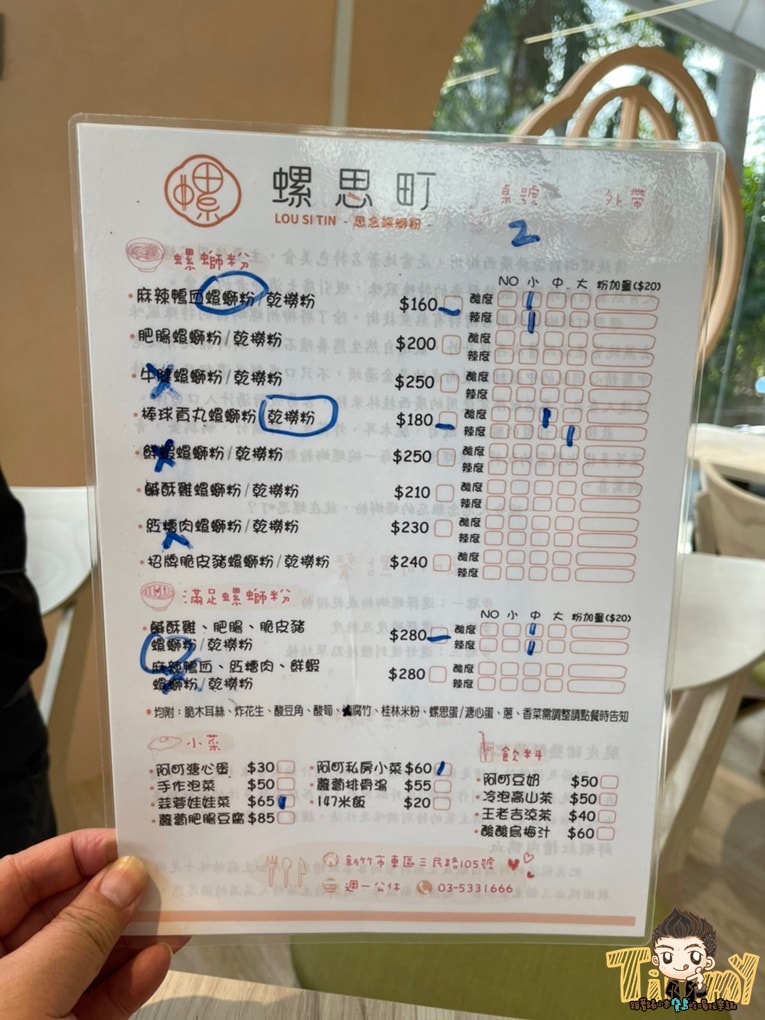 螺思町
LOU SI TIN - 思念螺螄粉 -
桌號 外帶
2
螺螄粉
NO 小 中 大 粉加量($20)
•麻辣鴨血螺螄粉/乾撈粉 $160 酸度
辣度
•肥腸螺螄粉/乾撈粉 $200 酸度
辣度
•牛腱螺螄粉/乾撈粉 $250 酸度
辣度
•棒球貢丸螺螄粉/乾撈粉 $180 酸度
辣度
•鮮蝦螺螄粉/乾撈粉 $250 酸度
辣度
•鹹酥雞螺螄粉/乾撈粉 $210 酸度
辣度
•紅糟肉螺螄粉/乾撈粉 $230 酸度
辣度
•招牌脆皮豬螺螄粉/乾撈粉 $240 酸度
辣度
滿足螺螄粉
NO 小 中 大 粉加量($20)
•鹹酥雞、肥腸、脆皮豬
螺螄粉/乾撈粉 $280 酸度
辣度
•麻辣鴨血、紅糟肉、鮮蝦
螺螄粉/乾撈粉 $280 酸度
辣度
•均附：脆木耳絲、炸花生、酸豆角、酸筍、腐竹、桂林米粉、螺思蛋/溏心蛋、蔥、香菜需調整請點餐時告知
小菜
•阿町溏心蛋 $30
•手作泡菜 $50
•蒜蓉娃娃菜 $65
•蘿蔔肥腸豆腐 $85
•阿町私房小菜 $60
•蘿蔔排骨湯 $55
•147米飯 $20
飲料
•阿町豆奶 $50
•冷泡高山茶 $50
•王老吉涼茶 $40
•酸酸烏梅汁 $60
新竹市東區三民路105號
週一公休 03-5331666
TimmY